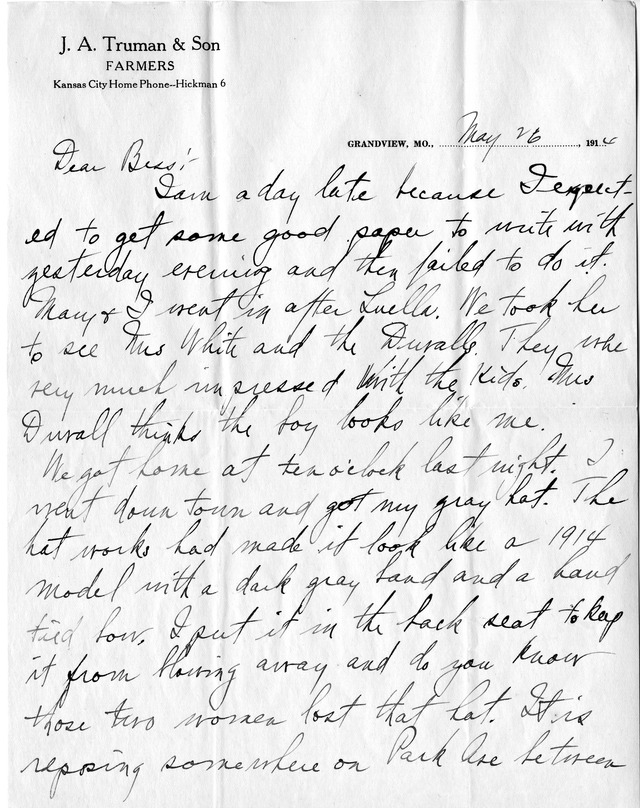 J. A. Truman & Son
FARMERS
Kansas City Home Phone--Hickman 6
GRANDVIEW, MO., May 26, 1914
Dear Bess:-
I am a day late because I expect-
ed to get some good paper to write with
yesterday evening and then failed to do it.
Mary & I went in after Luella. We took her
to see Mrs White and the Duvalls. They were
very much impressed with the kids. Mrs
Duvall thinks the boy looks like me.
We got home at ten o'clock last night. I
went down town and got my gray hat. The
hat works had made it look like a 1914
model with a dark gray band and a hand
tied bow. I put it in the back seat to keep
it from blowing away and do you know
those two women lost that hat. It is
reposing somewhere on Park Ave between